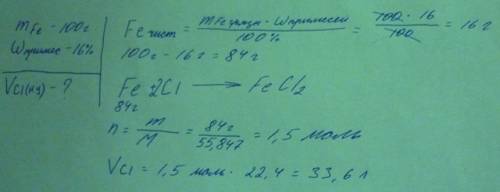 mFe - 100г
Wпримес - 16%
Vcl(н.у) - ?
Fe чист = mFe руды · Wпримесей / 100% = 100 · 16 / 100 = 16 г
100г - 16 г = 84г
Fe 2Cl → FeCl2
84г
n = m / M = 84г / 55,847 = 1,5 моль
Vcl = 1,5 моль · 22,4 = 33,6 л